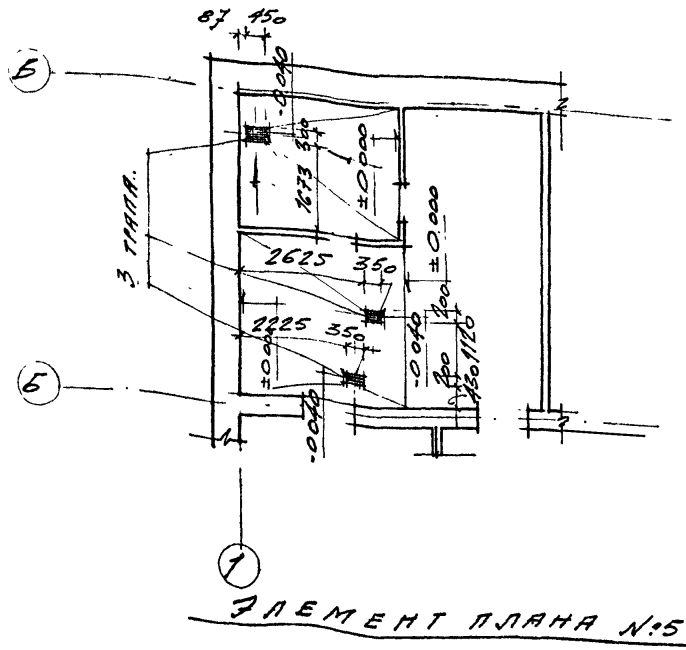 87 450
Б
-0040
300
1673
±0.000
3 ТРАПА.
±0.000
2625 350
200
2225 350
±0.000
-0040
1120
200
430
Б
-0040
1
ЭЛЕМЕНТ ПЛАНА №5